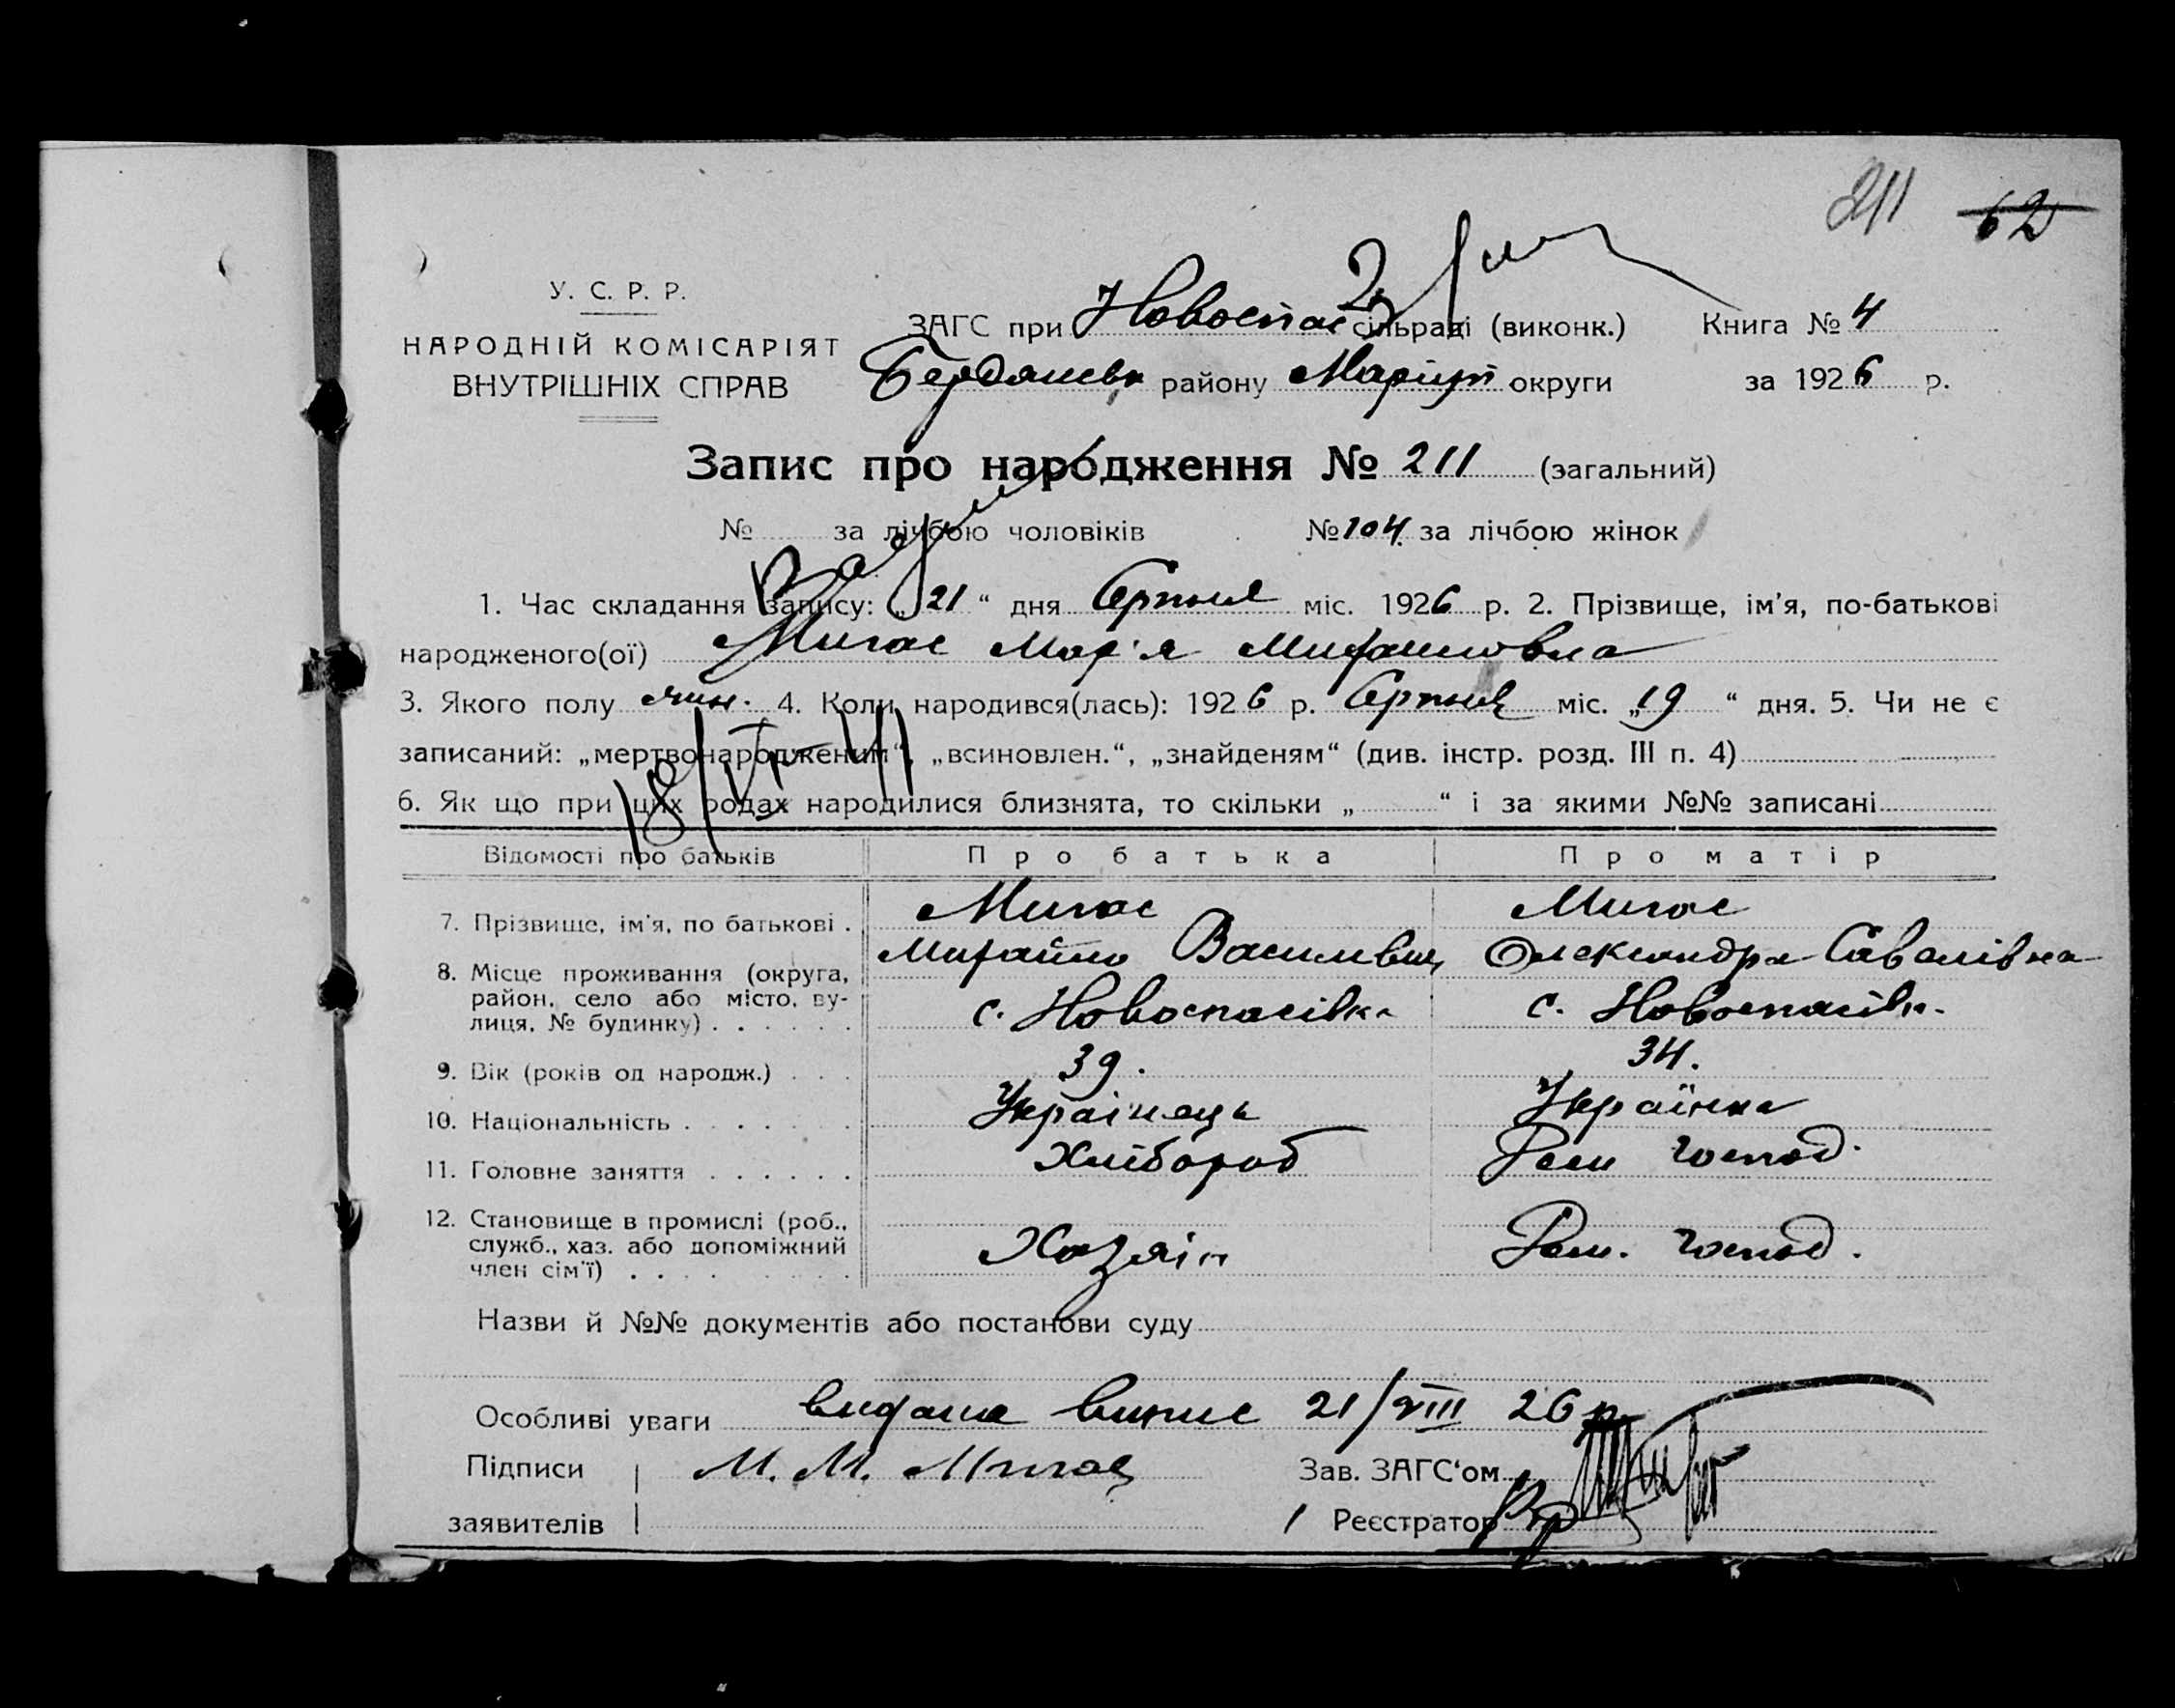 211 62
У. С. Р. Р.
НАРОДНІЙ КОМІСАРІЯТ
ВНУТРІШНІХ СПРАВ
ЗАГС при Новоспас сільраді (виконк.) Книга № 4
Бердянськ району Маріуп округи за 1926 р.
Запис про народження № 211 (загальний)
№ за лічбою чоловіків № 104. за лічбою жінок
1. Час складання запису: „ 21 “ дня Серпня міс. 1926 р. 2. Прізвище, ім'я, по-батькові
народженого(ої) Мигас Мар'я
3. Якого полу жін. 4. Коли народився(лась): 1926 р. Серпня міс. „19 “ дня. 5. Чи не є
записаний: „мертвонародженим“, „всиновлен.“, „знайденям“ (див. інстр. розд. III п. 4)
18/VI-41
6. Як що при цих родах народилися близнята, то скільки „ “ і за якими №№ записані
Відомості про батьків Про батька Про матір
7. Прізвище, ім'я, по батькові . Мигас Мигас
Василівич Олександра Савелівна
8. Місце проживання (округа,
район, село або місто, ву-
лиця, № будинку) . . . . . . с. Новоспасівка с. Новоспасівк.
9. Вік (років од народж.) . . . 39. 34.
10. Національність . . . . . . . Українець Українка
11. Головне заняття . . . . . . Хлібороб господ.
12. Становище в промислі (роб.,
служб., хаз. або допоміжний
член сім'ї) . . . . . . . . Хазяін господ.
Назви й №№ документів або постанови суду
Особливі уваги видана випис 21/VIII 26 р.
Підписи М. М. Мигас Зав. ЗАГС'ом
заявителів Реєстратор